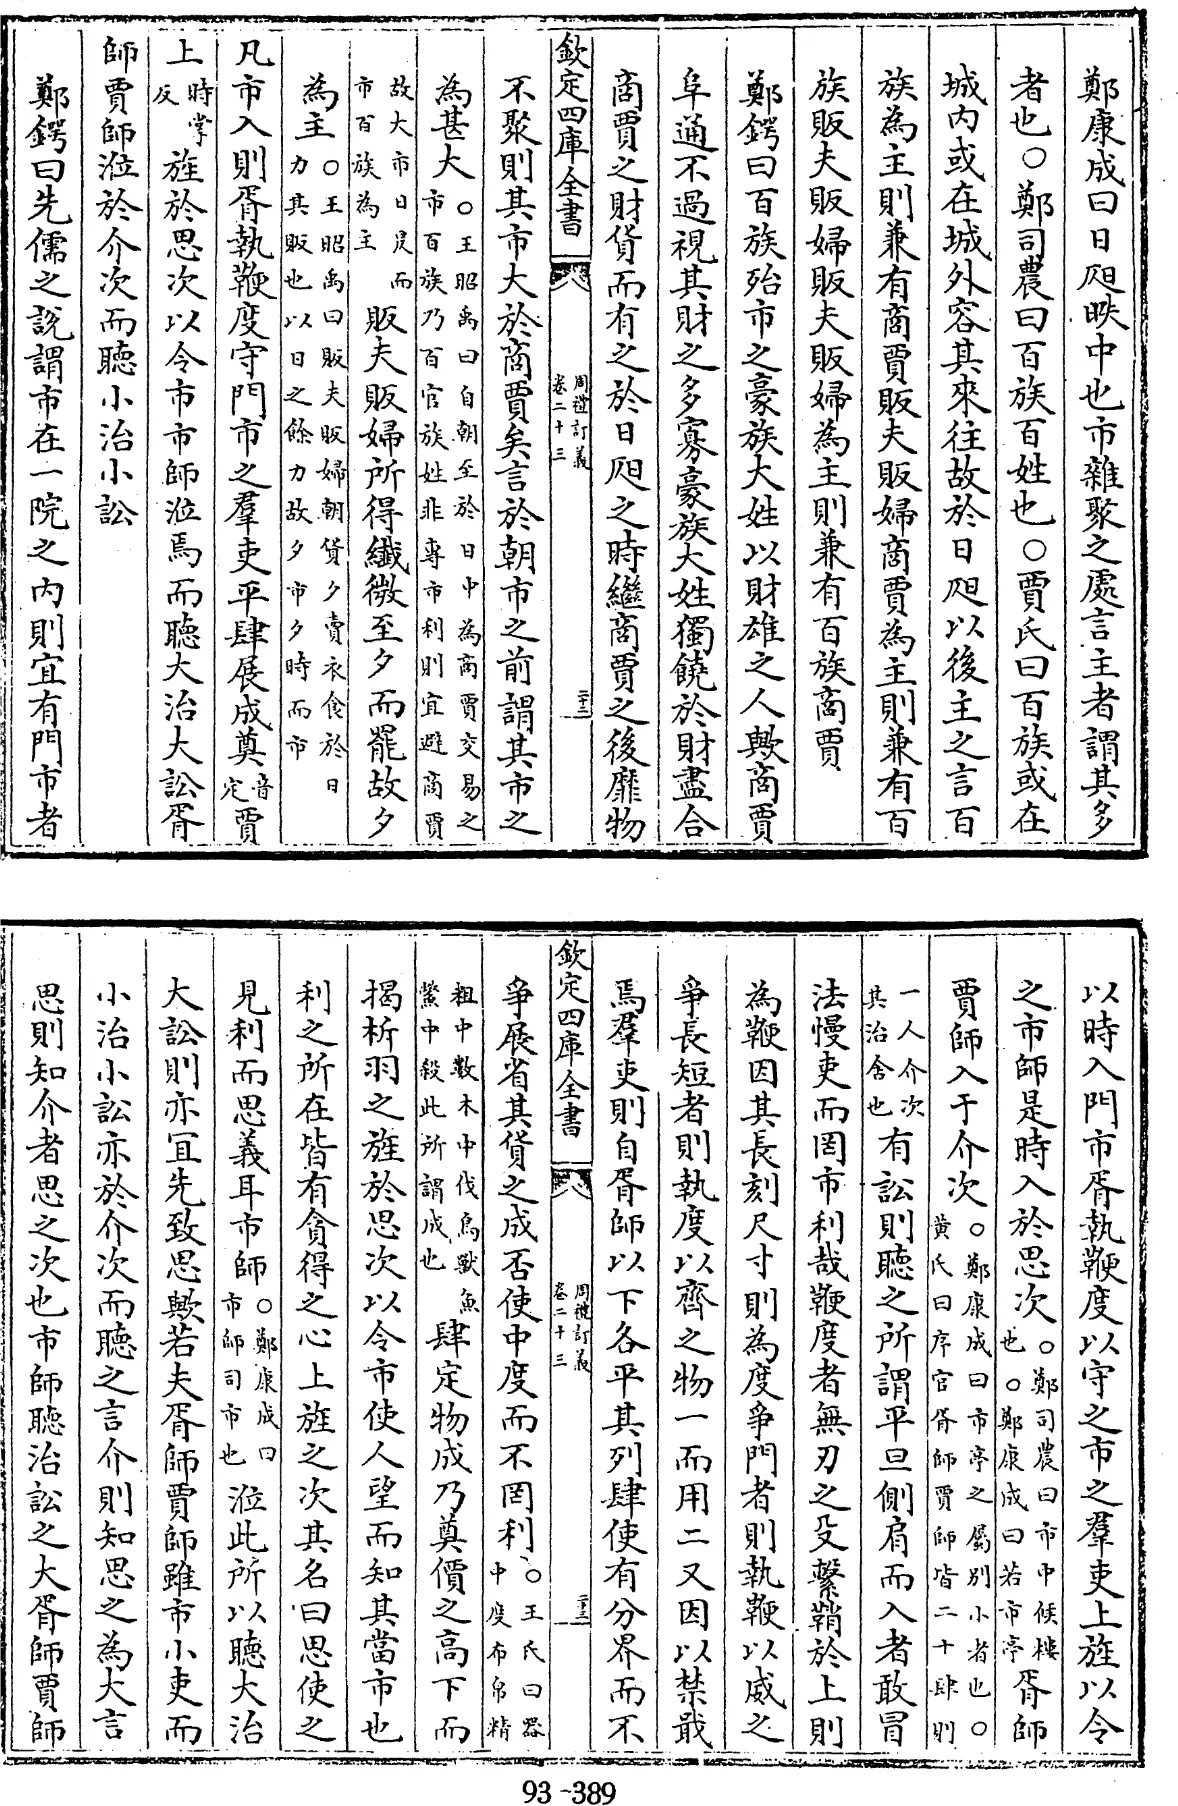 鄭康成曰日昃昳中也市雜聚之處言主者謂其多
者也○鄭司農曰百族百姓也○賈氏曰百族或在
城内或在城外容其來往故於日昃以後主之言百
族為主則兼有商賈販夫販婦商賈為主則兼有百
族販夫販婦販夫販婦為主則兼有百族商賈
鄭鍔曰百族殆市之豪族大姓以財雄之人歟商賈
阜通不過視其財之多寡豪族大姓獨饒於財盡合
商賈之財貨而有之於日昃之時繼商賈之後靡物
欽定四庫全書
周禮訂義
卷二十三
二十二
不聚則其市大於商賈矣言於朝市之前謂其市之
為甚大○王昭禹曰自朝至於日中為商賈交易之
市百族乃百官族姓非專市利則宜避商賈
故大市日昃而
市百族為主
販夫販婦所得纖微至夕而罷故夕
為主○王昭禹曰販夫販婦朝貨夕賣衣食於日
力其販也以日之餘力故夕市夕時而市
凡市入則胥執鞭度守門市之羣吏平肆展成奠音定賈
上時掌反旌於思次以令市市師涖焉而聽大治大訟胥
師賈師涖於介次而聽小治小訟
鄭鍔曰先儒之說謂市在一院之内則宜有門市者
以時入門市胥執鞭度以守之市之羣吏上旌以令
之市師是時入於思次○鄭司農曰市中候樓
也○鄭康成曰若市亭
胥師
賈師入于介次○鄭康成曰市亭之屬别小者也○
黄氏曰序官胥師賈師皆二十肆則
一人介次
其治舍也
有訟則聽之所謂平旦側肩而入者敢冒
法慢吏而罔市利哉鞭度者無刃之殳繫鞘於上則
為鞭因其長刻尺寸則為度爭門者則執鞭以威之
爭長短者則執度以齊之物一而用二又因以禁戢
焉羣吏則自胥師以下各平其列肆使有分界而不
欽定四庫全書
周禮訂義
卷二十三
二十三
爭展省其貨之成否使中度而不罔利○王氏曰器
中度布帛精
粗中數木中伐鳥獸魚
鱉中殺此所謂成也
肆定物成乃奠價之高下而
揭析羽之旌於思次以令市使人望而知其當市也
利之所在皆有貪得之心上旌之次其名曰思使之
見利而思義耳市師○鄭康成曰
市師司市也
涖此所以聽大治
大訟則亦宜先致思歟若夫胥師賈師雖市小吏而
小治小訟亦於介次而聽之言介則知思之為大言
思則知介者思之次也市師聽治訟之大胥師賈師
93-389